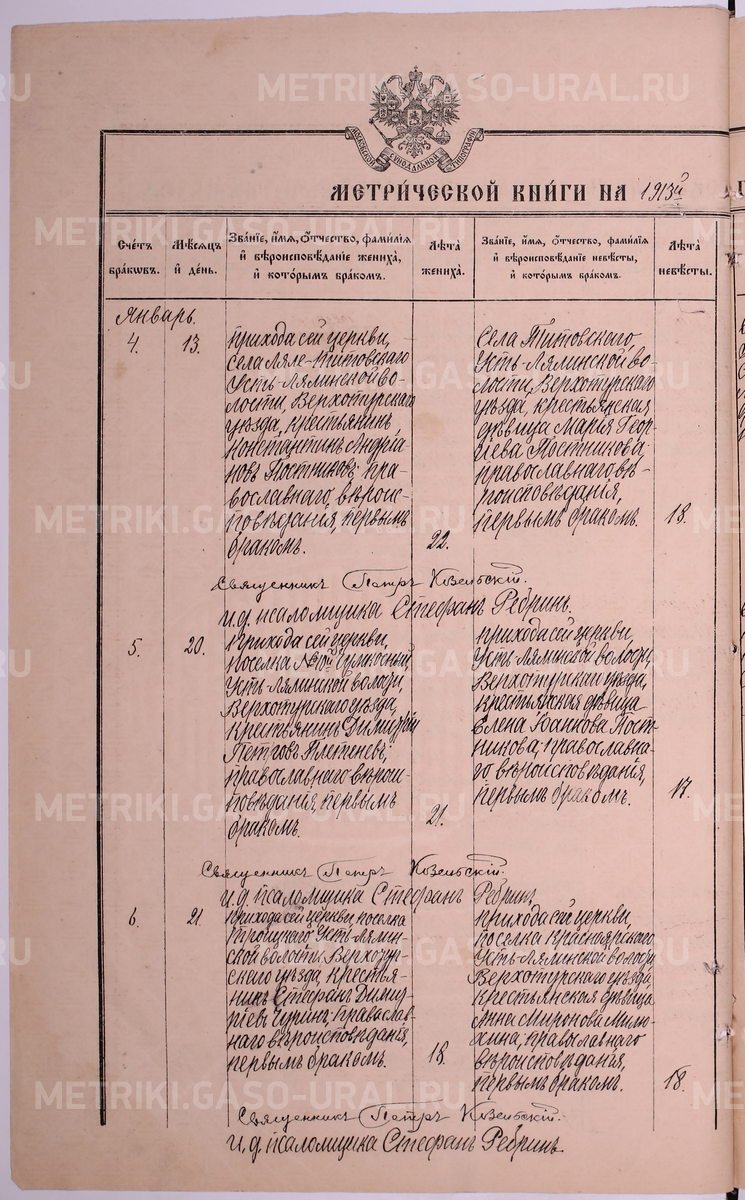 МОСКОВСКОЙ СѴНОДАЛЬНОЙ ТИПОГРАФІИ
МЕТРИ́ЧЕСКОЙ КНИ́ГИ НА 1913й
Сче́тъ бра́кѡвъ.
Мѣ́сяцъ и҆ де́нь.
Зва́нїе, и҆́мѧ, ѻ҆́тчество, фами́лїѧ и҆ вѣроисповѣ́данїе жениха̀, и҆ кото́рымъ бра́комъ.
Лѣ́та жениха̀.
Зва́нїе, и҆́мѧ, ѻ҆́тчество, фами́лїѧ и҆ вѣроисповѣ́данїе невѣ́сты, и҆ кото́рымъ бра́комъ.
Лѣ́та невѣ́сты.
Январь.
4.
13.
Прихода сей церкви,
села Ляле-Титовскаго
Усть-Лялинской во-
лости, Верхотурскаго
уѣзда, крестьянинъ
Константинъ Андріа-
новъ Постниковъ; пра-
вославнаго вѣроис-
повѣданія, первымъ
бракомъ.
22.
Села Титовскаго,
Усть-Лялинской во-
лости, Верхотурскаго
уѣзда, крестьянская
дѣвица Марія Геор-
гіева Постникова,
православнаго вѣ-
роисповѣданія,
первымъ бракомъ.
18.
Священникъ Петръ Козельскій.
и. д. псаломщика Стефанъ Ребринъ.
5.
20.
Прихода сей церкви,
поселка №10й
Усть-Лялинской волости,
Верхотурскаго уѣзда,
крестьянинъ Димитрій
Петровъ Плетеневъ;
православнаго вѣроис-
повѣданія, первымъ
бракомъ.
21.
Прихода сей церкви,
Усть-Лялинской волости,
Верхотурскаго уѣзда,
крестьянская дѣвица
Елена Іоаннова Пост-
никова, православна-
го вѣроисповѣданія,
первымъ бракомъ.
17.
Священникъ Петръ Козельскій.
и. д. псаломщика Стефанъ Ребринъ.
6.
21.
Прихода сей церкви, поселка
Троицкаго Усть-Лялин-
ской волости Верхоту-
рскаго уѣзда, крестья-
нинъ Стефанъ Димит-
ріевъ Чуринъ; православ-
наго вѣроисповѣданія,
первымъ бракомъ.
18.
Прихода сей церкви,
поселка Красноярскаго
Усть-Лялинской волости
Верхотурскаго уѣзда,
крестьянская дѣвица
Анна Миронова Милю-
хина, православнаго
вѣроисповѣданія,
первымъ бракомъ.
18.
Священникъ Петръ Козельскій.
и. д. псаломщика Стефанъ Ребринъ.
METRIKI.GASO-URAL.RU